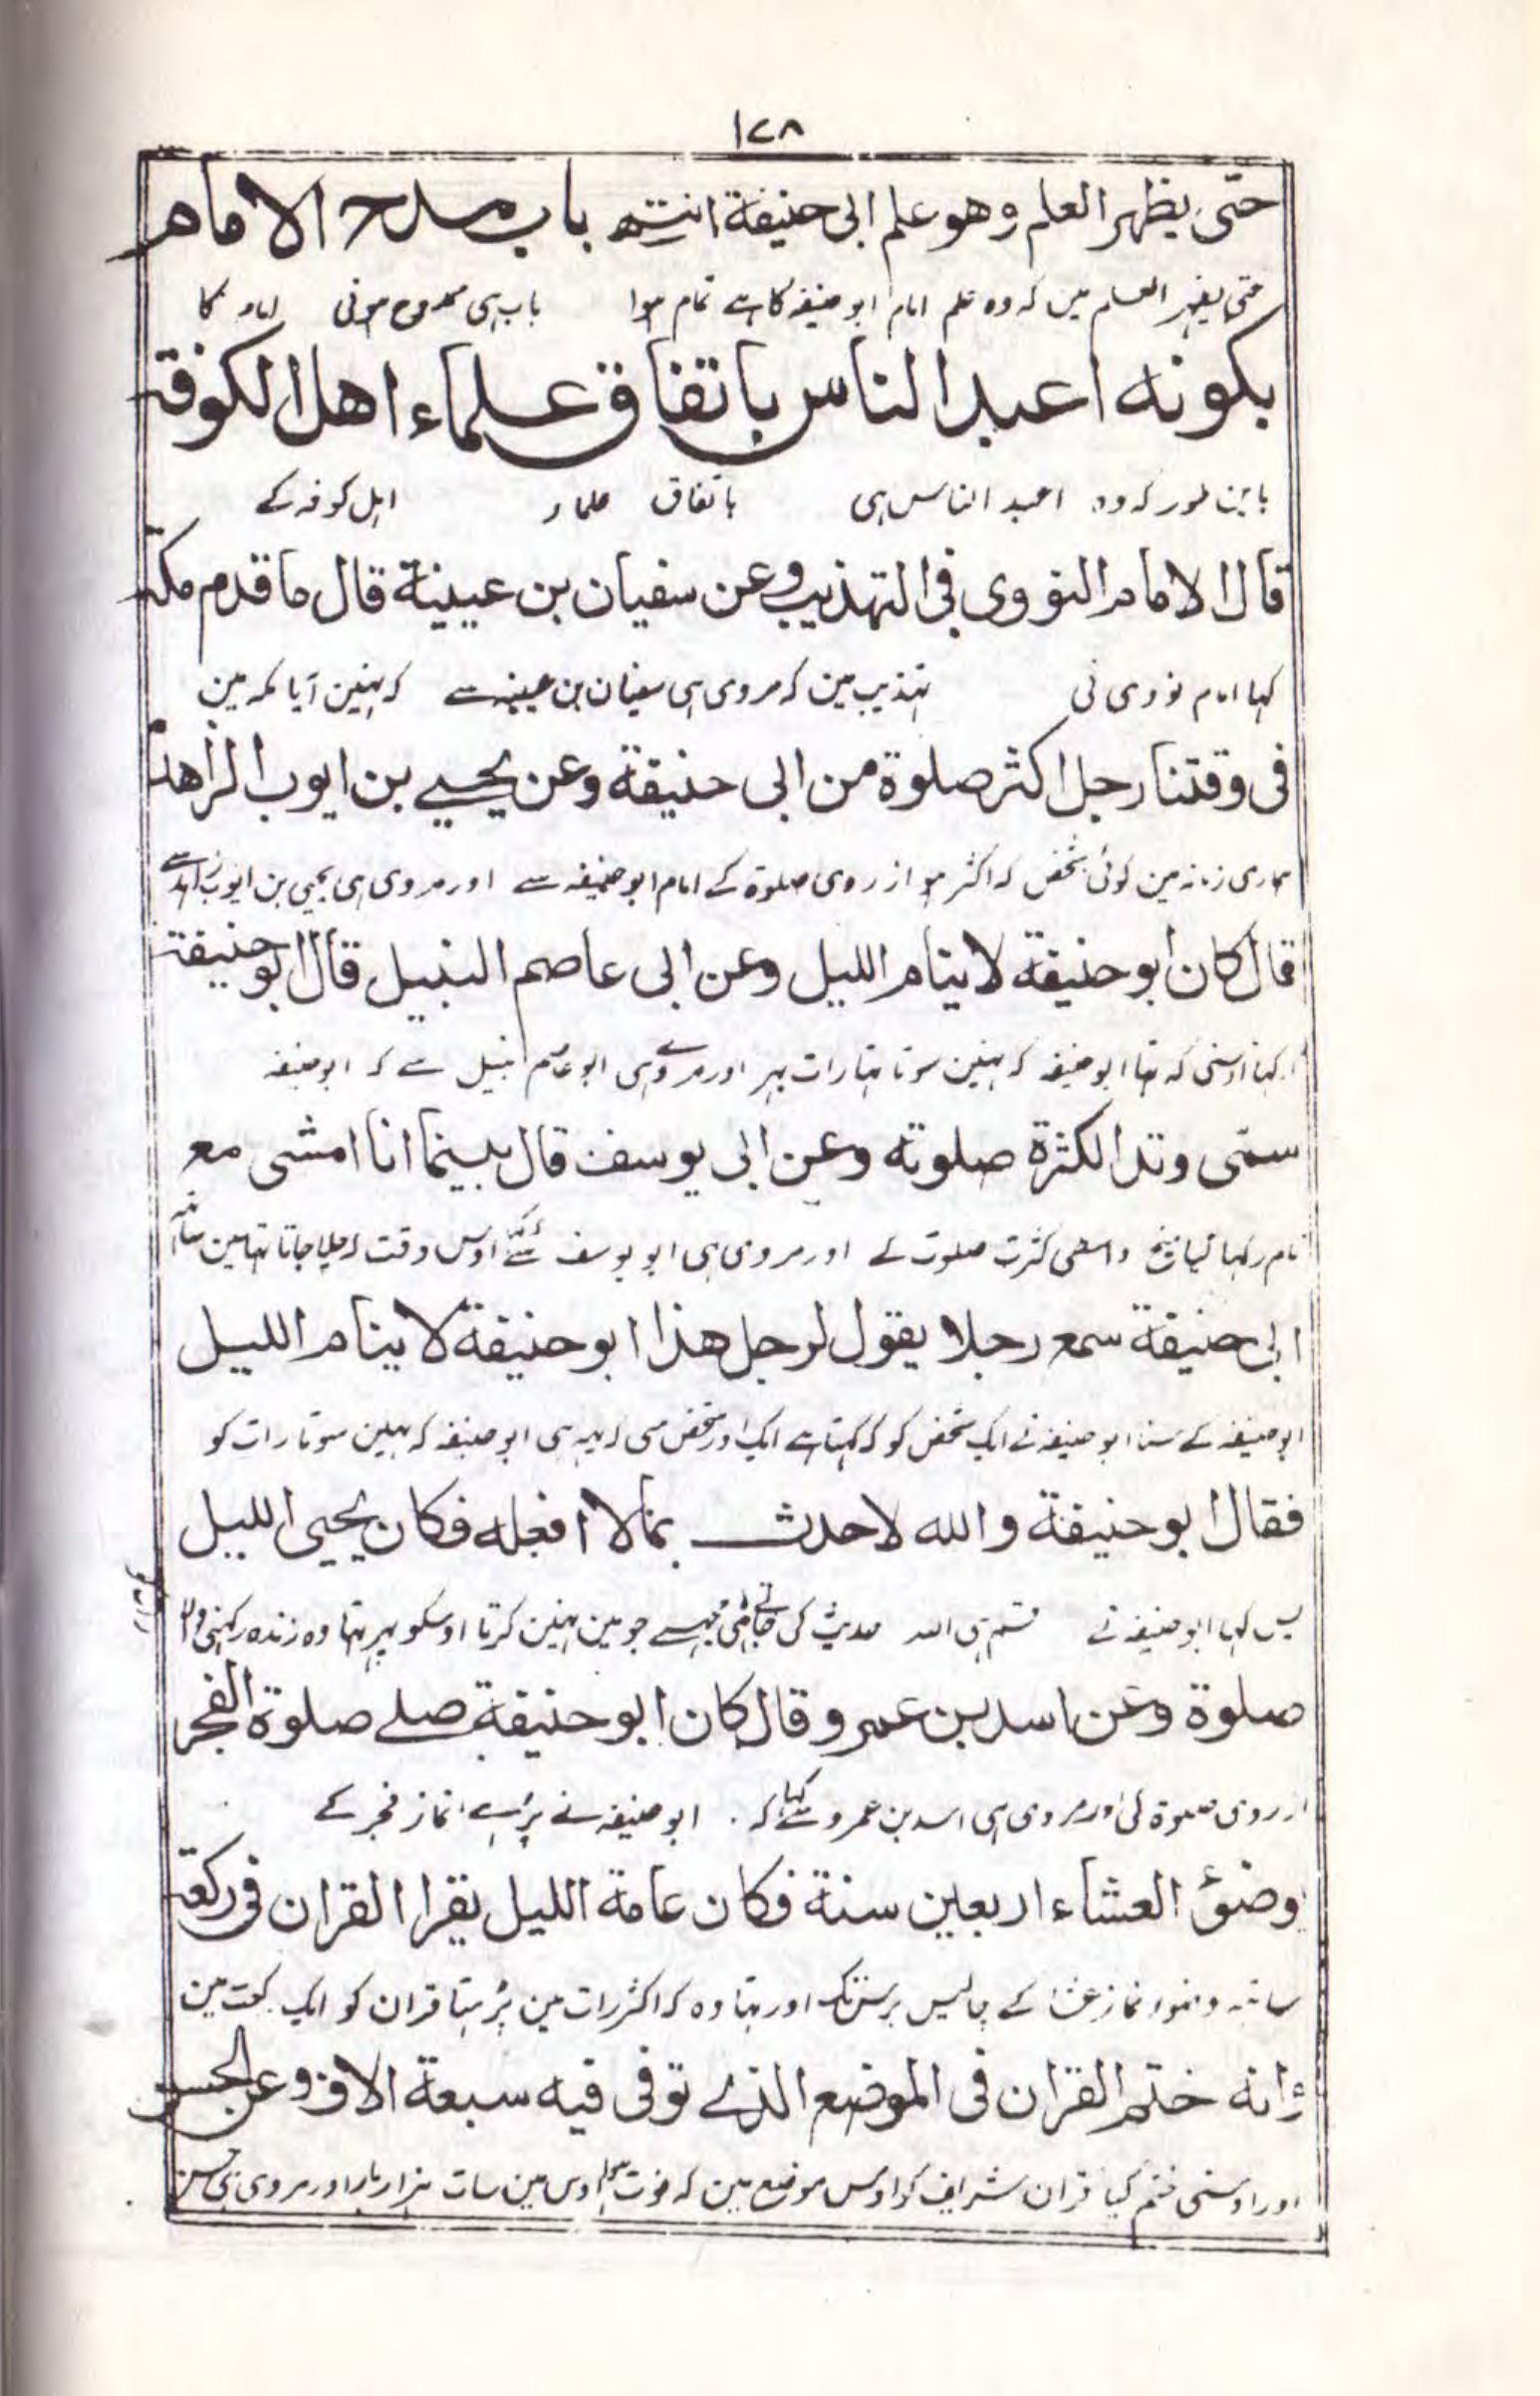 ١٧٨
حتى يظهر العلم وهو علم ابى حنيفة انتهى باب مدح الامام
حتى يظهر العلم مين كه وه علم امام ابو حنيفه كا ہے تمام ہوا باب ہى ممدوح ہونى امام كا
بكونه اعبد الناس باتفاق علماء اهل الكوفة
باين طور كه وه اعبد الناس ہى باتفاق علماء اہل كوفہ كے
قال الامام النووى فى التهذيب وعن سفيان بن عيينة قال ما قدم مكة
كہا امام نووى نى تہذيب مين كه مروى ہى سفيان بن عيينه سے كه نہين آيا مكه مين
فى وقتنا رجل اكثر صلوة من ابى حنيفة وعن يحيى بن ايوب الزاهد
ہمارى زمانه مين كوئى شخص كه اكثر ہو از روى صلوة كے امام ابو حنيفه سے اور مروى ہى يحيى بن ايوب زاہد سے
قال كان ابو حنيفة لا ينام الليل وعن ابى عاصم النبيل قال ابو حنيفة
كہا اوسنى كه تہا ابو حنيفه كه نہين سوتا تہا رات بہر اور مروے ہى ابو عاصم نبيل سے كه ابو حنيفه
سمى وتد الكثرة صلوته وعن ابى يوسف قال بينما انا امشى مع
نام ركہا گيا ميخ واسطى كثرت صلوت كے اور مروى ہى ابو يوسف سے اوس وقت كه چلا جاتا تہا مين ساتہ
ابى حنيفة سمع رجلا يقول لرجل هذا ابو حنيفة لا ينام الليل
ابو حنيفه كے سنا ابو حنيفه نے ايك شخص كو كه كہتا ہے ايك اور شخص سى كه يہ ہى ابو حنيفه كه نہين سوتا رات كو
فقال ابو حنيفة والله لاحدث بما لا افعله فكان يحيى الليل
پس كہا ابو حنيفه نے قسم ہى الله حديث كى جاتى ہى مجہسے جو مين نہين كرتا اوسكو پہر تہا وه زنده ركہنى والا
صلوة وعن اسد بن عمرو قال كان ابو حنيفة صلے صلوة الفجر
از روى صلوة كى اور مروى ہى اسد بن عمرو سے كہا كه ابو حنيفه نے پڑہى نماز فجر كے
وضوء العشاء اربعين سنة فكان عامة الليل يقرا القران فى ركعة
ساتہ وضوء نماز عشا كے چاليس برس تك اور تہا وه كه اكثر رات مين پڑہتا قران كو ايك ركعت مين
وانه ختم القران فى الموضع الذے توفى فيه سبعة الاف وعن الحسن
اور اوسنى ختم كيا قران شريف كو اوس موضع مين كه فوت ہوا اوس مين سات ہزار بار اور مروى ہى حسن